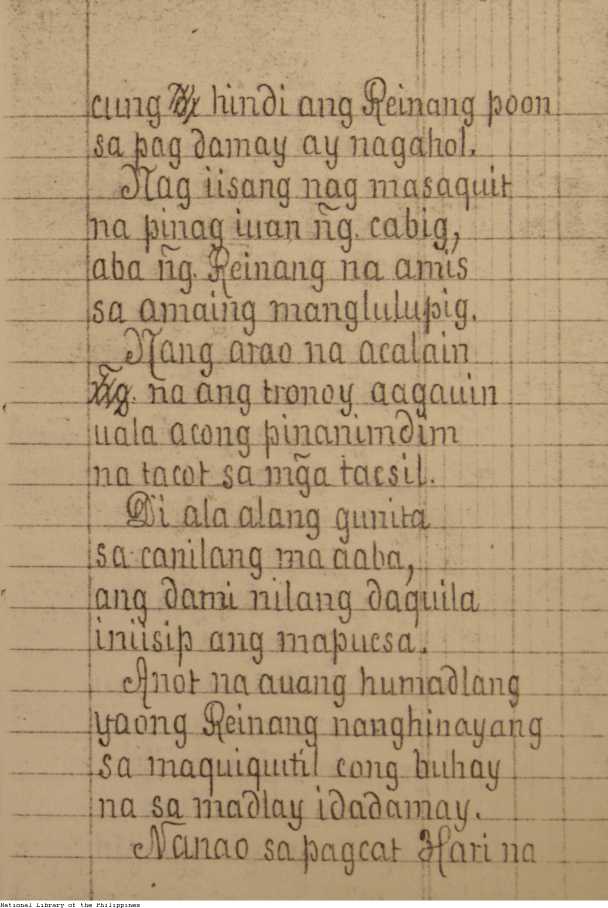 cung hindi ang Reinang poon
sa pag damay ay nagahol.
Nag iisang nag masaquit
na pinag iuan ñg. cabig,
aba ñg. Reinang na amis
sa amaing manglulupig.
Nang arao na acalain
ña ang tronoy aagauin
uala acong pinanimdim
na tacot sa mg̃a tacsil.
Di ala alang gunita
sa canilang ma aaba,
ang dami nilang daquila
iniisip ang mapucsa.
Anot na auang humadlang
yaong Reinang nanghinayang
sa maquiquitil cong buhay
na sa madlay idadamay.
Nanao sa pagcat Hari na
National Library of the Philippines